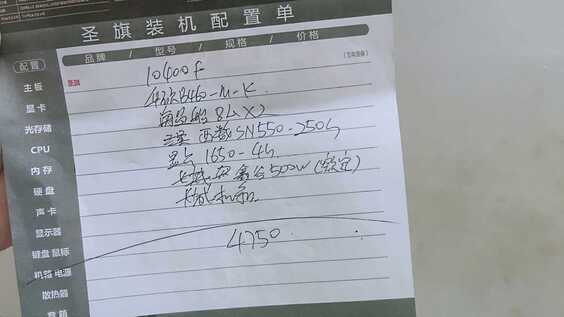 圣旗装机配置单
品牌 / 型号 / 规格 / 价格
配置
主板
显卡
光存储
CPU
内存
硬盘
声卡
显示器
键盘 鼠标
机箱 电源
散热器
音箱
10400F
华硕B460-M-K
海盗船 8G X2
西数SN550-250G
显卡 1650-4G
长城 500W (额定)
长城机箱
4750